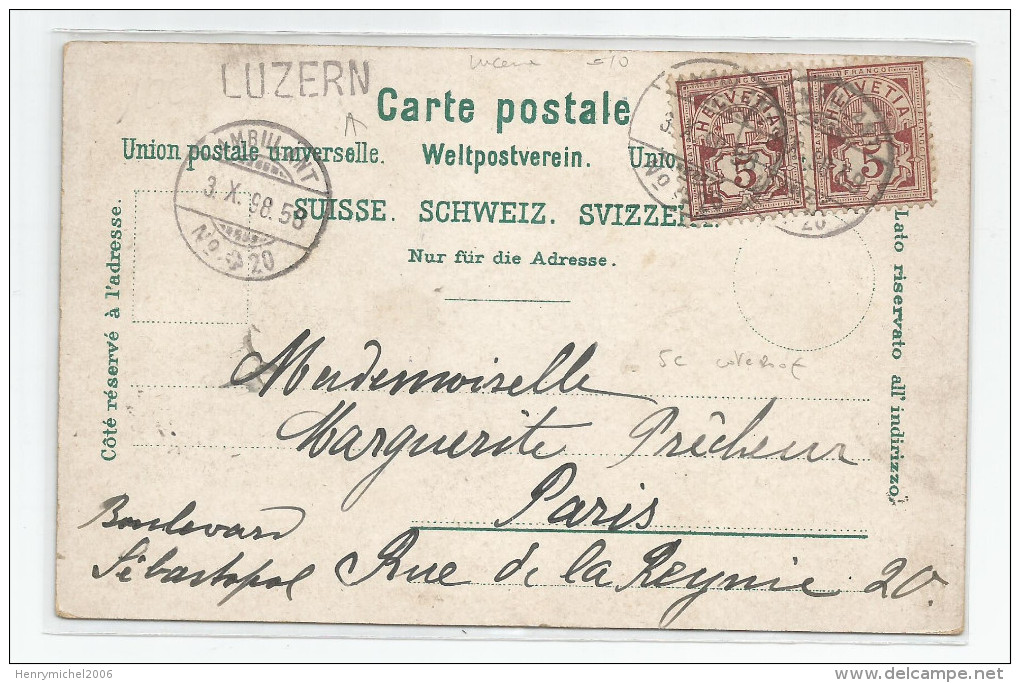 LUZERN
Carte postale
Union postale universelle. Weltpostverein. Unio
SUISSE. SCHWEIZ. SVIZZE
Nur für die Adresse.
AMBULANT
3. X. 98. 5
No. 20
FRANCO
HELVETIA
5
FRANCO
HELVETIA
5
20
Côté réservé à l'adresse.
Lato riservato all' indirizzo.
5c
Mademoiselle
Marguerite Prêcheur
Paris
Boulevard
Sébastopol Rue de la Reynie 20.
Henrymichel2006
delcampe.net